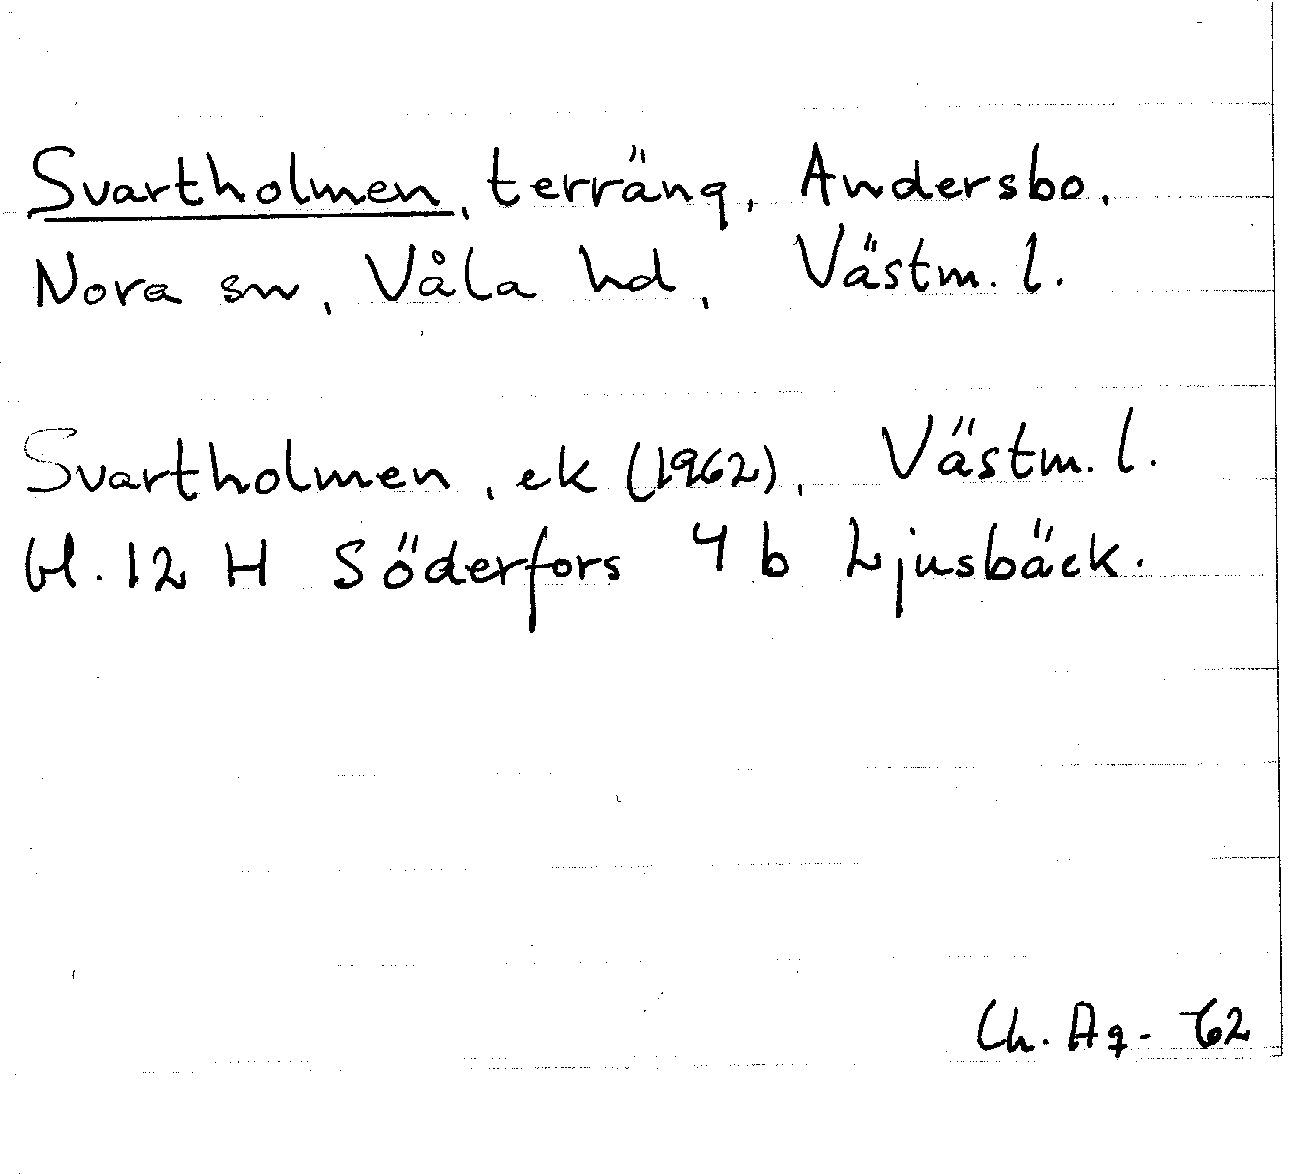 Svartholmen, terräng, Andersbo,
Nora sn, Våla hd, Västm. l.
Svartholmen, ek (1962), Västm. l.
bl. 12 H Söderfors 4 b Ljusbäck.
Ch. Ag- 62